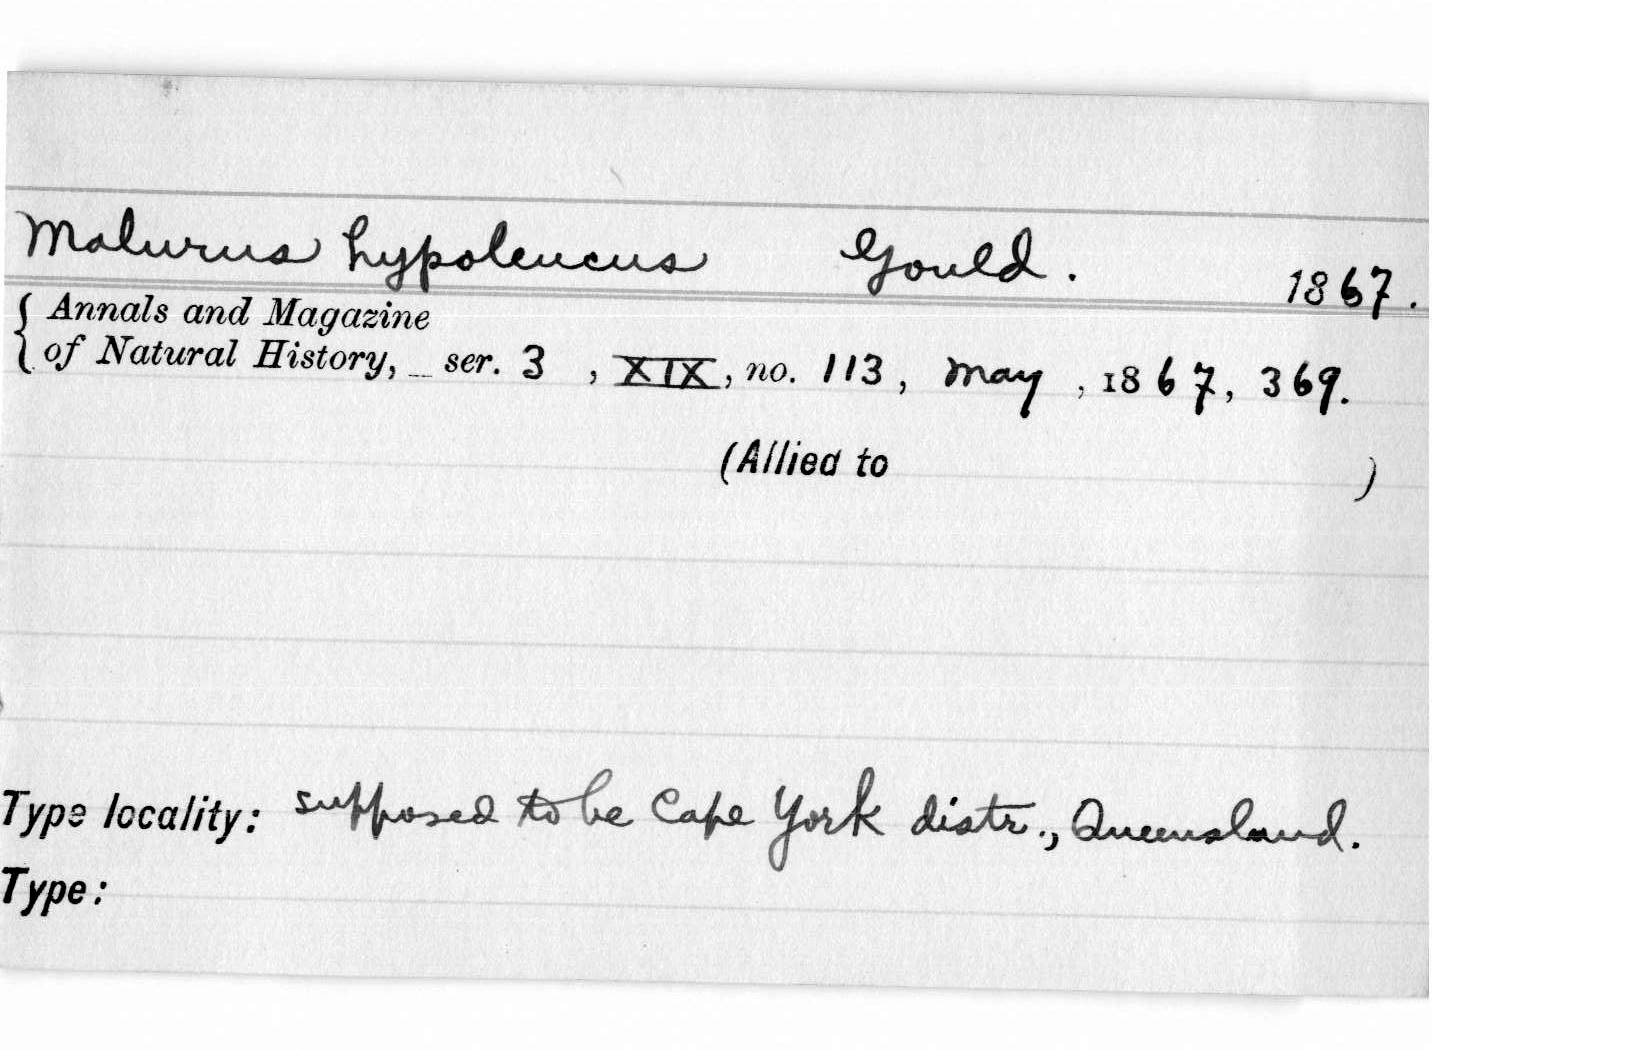 Malurus hypoleucus Gould. 1867.
{ Annals and Magazine
of Natural History, _ ser. 3 , XIX, no. 113, May , 1867, 369.
(Allied to )
Type locality: supposed to be Cape York distr., Queensland.
Type: